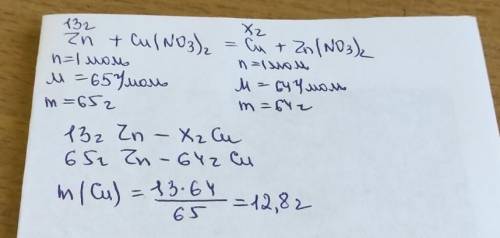 13г x г
Zn + Cu(NO3)2 = Cu + Zn(NO3)2
n=1моль n=1моль
M = 65г/моль M = 64г/моль
m=65г m=64г
13г Zn – x г Cu
65г Zn – 64г Cu
m(Cu) = 13·64/65 = 12,8г